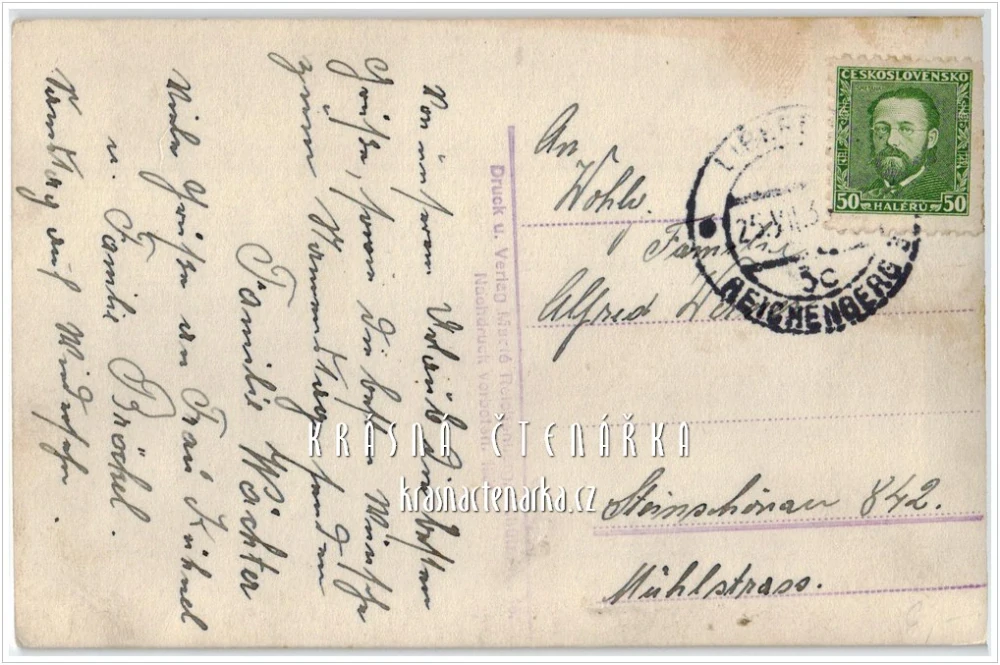 Von unserem Urlaub die besten
Grüße, sowie die besten Wünsche
zum Namenstag senden
Familie Wächter
Viele Grüße an Frau Kühnel
u. Familie Bröckel.
auf Wiedersehn.
Druck u. Verlag
Nachdruck verboten.
An
Wohlv.
Familie
Alfred
Steinschönau 842.
Mühlstrass.
ČESKOSLOVENSKO
50 HALÉRŮ 50
3c
REICHENBERG
KRÁSNÁ ČTENÁŘKA
krasnactenarka.cz